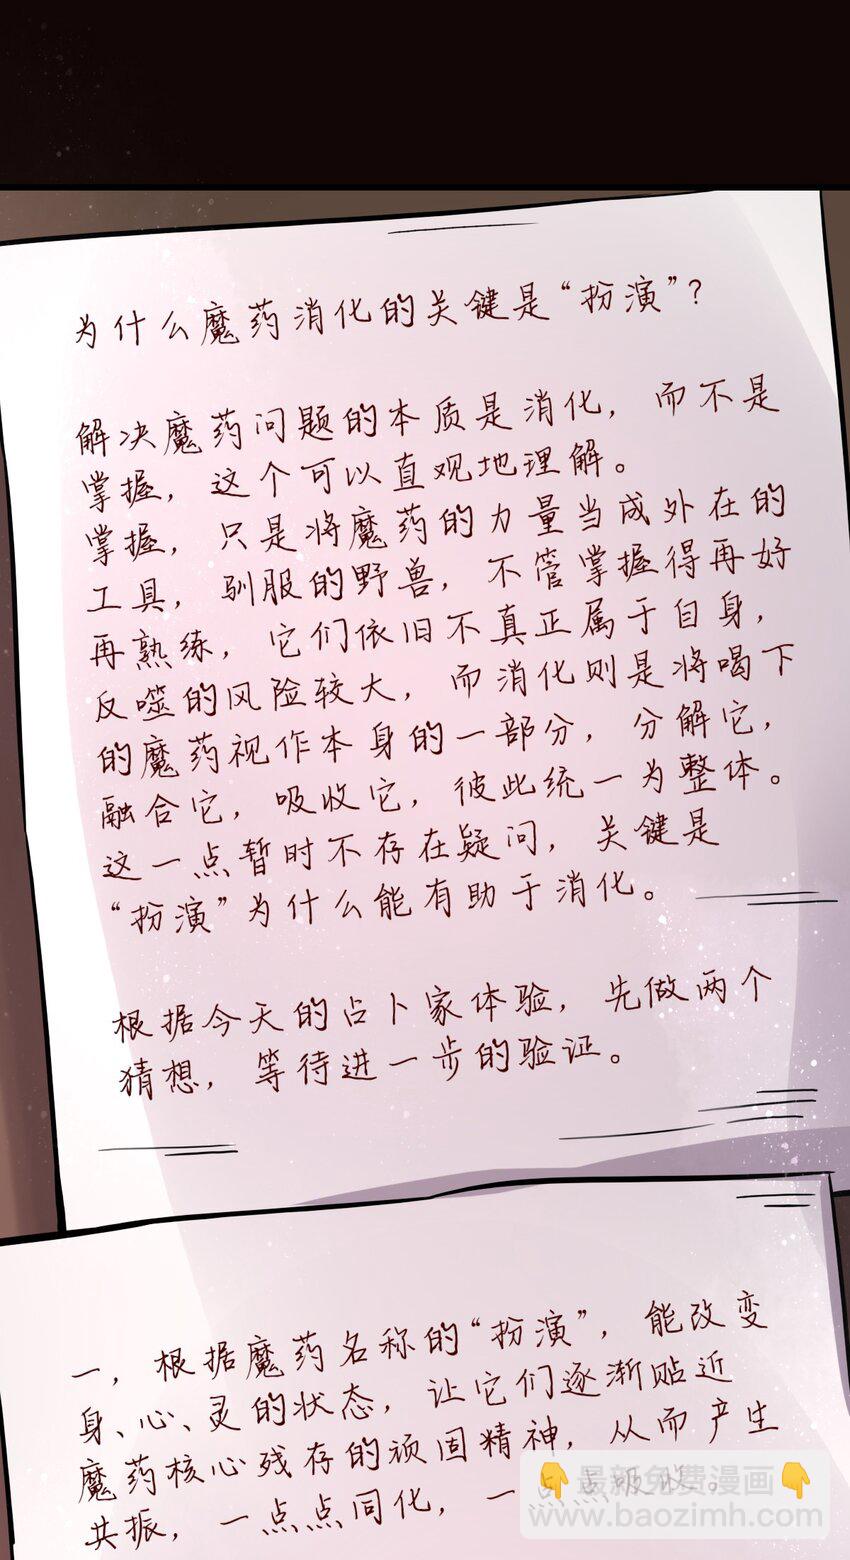 为什么魔药消化的关键是“扮演”？
解决魔药问题的本质是消化，而不是
掌握，这个可以直观地理解。
掌握，只是将魔药的力量当成外在的
工具，驯服的野兽，不管掌握得再好
再熟练，它们依旧不真正属于自身，
反噬的风险较大，而消化则是将喝下
的魔药视作本身的一部分，分解它，
融合它，吸收它，彼此统一为整体。
这一点暂时不存在疑问，关键是
“扮演”为什么能有助于消化。
根据今天的占卜家体验，先做两个
猜想，等待进一步的验证。
一，根据魔药名称的“扮演”，能改变
身、心、灵的状态，让它们逐渐贴近
魔药核心残存的顽固精神，从而产生
共振，一点点同化，一点点吸收。
👇最新免费漫画👇
www.baozimh.com